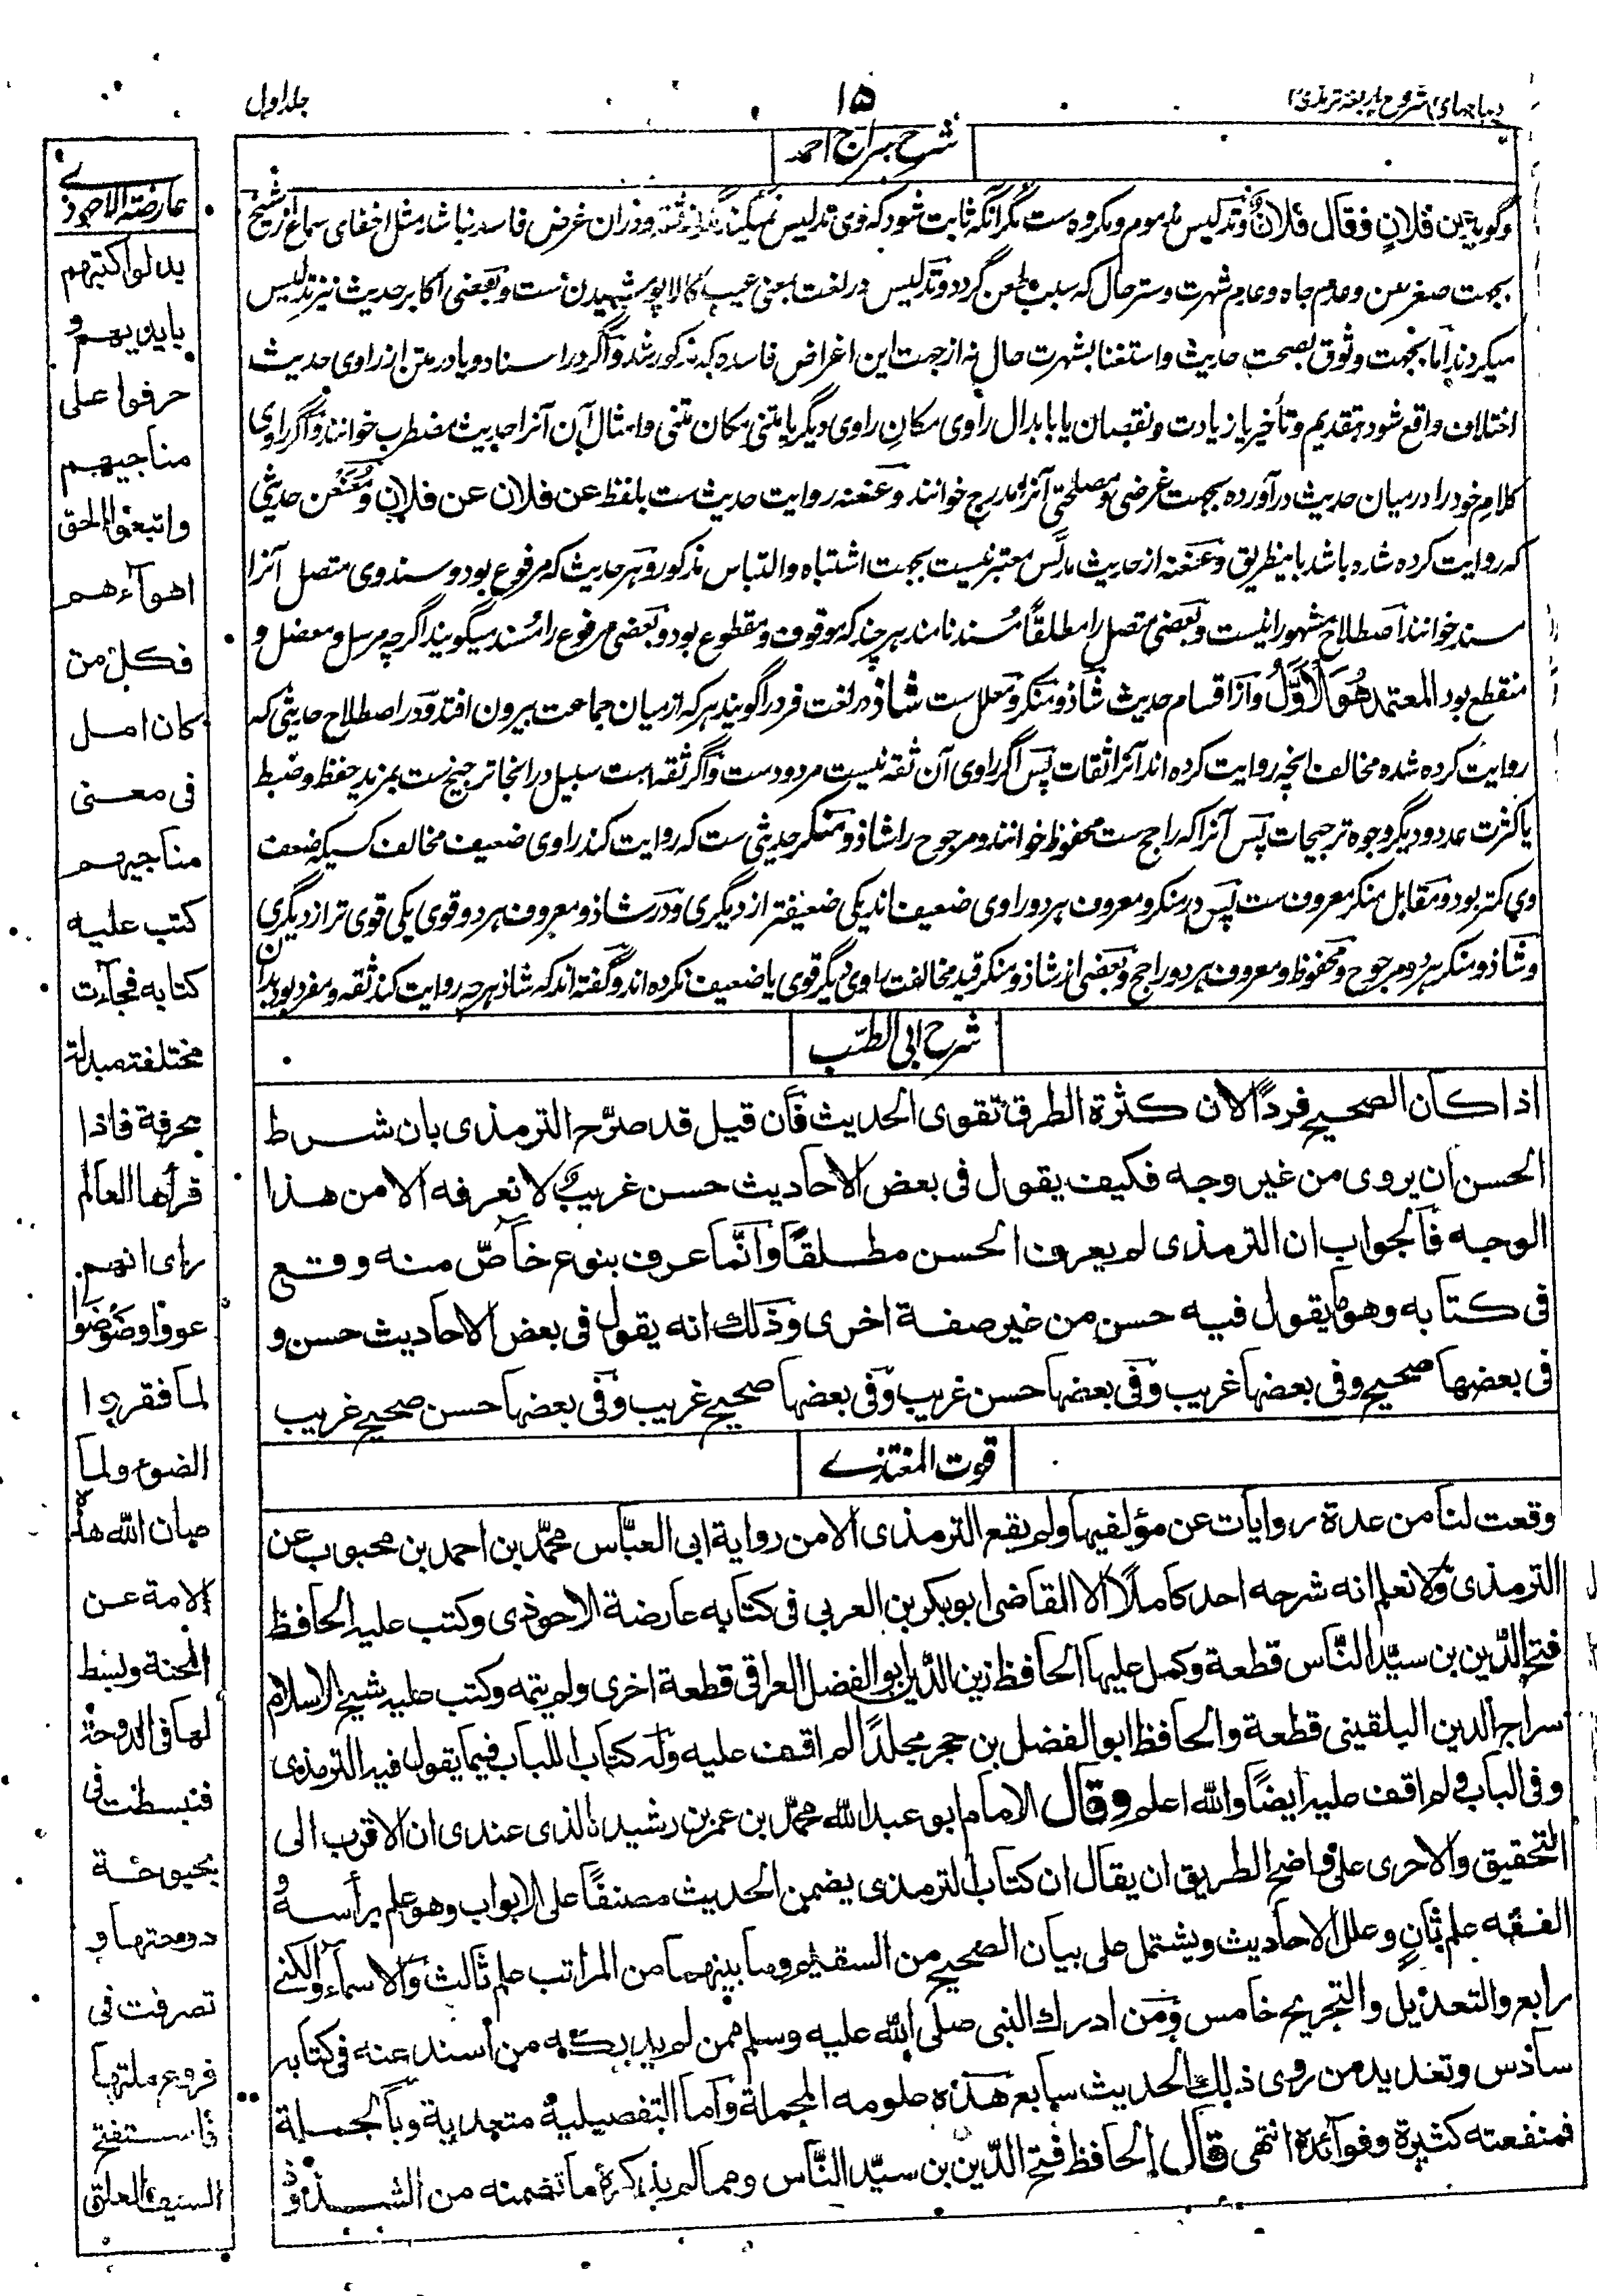 دیباچهای شروح اربعه ترمذی
۱۵
جلد اول
شرح سراج احمد
وگوید عن فلان فقال فلان وتدلیس مذموم ومکروه ست مگر آنکه ثابت شود که وی تدلیس نمیکند مگر از ثقه ودران غرض فاسد نباشد مثل اخفای سماع از شیخ
بجهت صغر سن وعدم جاه وعدم شهرت وستر حال که سبب طعن گردد وتدلیس در لغت بمعنی عیب کالا پوشیدن ست وبعضی اکابر حدیث نیز تدلیس
میکردند اما بجهت وثوق بصحت حدیث واستغنا بشهرت حال نه از جهت این اغراض فاسده که مذکور شد واگر در اسناد ویا در متن از راوی حدیث
اختلاف واقع شود بتقدیم وتأخیر یا زیادت ونقصان یا بابدال راوی مکان راوی دیگر یا متنی مکان متنی وامثال آن آنرا حدیث مضطرب خوانند واگر راوی
کلام خود را درمیان حدیث درآورده بجهت غرضی ومصلحتی آنرا مدرج خوانند وعنعنه روایت حدیث ست بلفظ عن فلان عن فلان ومعنعن حدیثی
که روایت کرده شده باشد باینطریق وعنعنه از حدیث مدلس معتبر نیست بجهت اشتباه والتباس مذکور وهر حدیث که مرفوع بود وسند وی متصل آنرا
مسند خوانند اصطلاح مشهور اینست وبعضی متصل را مطلقاً مُسند نامند هرچند که موقوف ومقطوع بود وبعضی مرفوع را مُسند میگویند اگرچه مرسل ومعضل و
منقطع بود المعتمد هُوَ الاَوَّلُ واز اقسام حدیث شاذ ومنکر ومعلل ست شاذ در لغت فرد را گویند هرکه از میان جماعت بیرون افتد ودر اصطلاح حدیثی که
روایت کرده شده مخالف انچه روایت کرده اند آنرا ثقات پس اگر راوی آن ثقه نیست مردود ست واگر ثقه است سبیل درانجا ترجیح ست بمزید حفظ وضبط
یا کثرت عدد ودیگر وجوه ترجیحات پس آنرا که راجح ست محفوظ خوانند ومرجوح را شاذ ومنکر حدیثی ست که روایت کند راوی ضعیف مخالف کسیکه ضعف
وی کمتر بود ومقابل منکر معروف ست پس در منکر ومعروف هر دو راوی ضعیف اند یکی ضعیفتر از دیگری ودر شاذ ومعروف هر دو قوی یکی قوی تر از دیگری
وشاذ ومنکر هر دو مرجوح ومحفوظ ومعروف هر دو راجح وبعضی از شاذ ومنکر قید مخالفت راوی دیگر قوی یا ضعیف نکرده اند وگفته اند که شاذ هرچه روایت کند ثقه ومفرد بود بدان
شرح ابی الطیّب
اذا کان الصحیح فرداً لان کثرة الطرق تقوی الحدیث فان قیل قد صرّح الترمذی بان شرط
الحسن ان یروی من غیر وجه فکیف یقول فی بعض الاحادیث حسن غریبٌ لا نعرفه الا من هذا
الوجه فالجواب ان الترمذی لم یعرف الحسن مطلقًا وانّما عرف بنوع خاصّ منه وقع
فی کتابه وهو ما یقول فیه حسن من غیر صفة اخری وذلك انه یقول فی بعض الاحادیث حسن و
فی بعضها صحیح وفی بعضها غریب وفی بعضها حسن غریب وفی بعضها صحیح غریب وفی بعضها حسن صحیح غریب
قوت المغتذے
وقعت لنا من عدة روایات عن مؤلفیها ولم یقع الترمذی الا من روایة ابی العبّاس محمّد بن احمد بن محبوب عن
الترمذی ولا نعلم انه شرحه احد کاملًا الا القاضی ابوبکر بن العربی فی کتابه عارضة الاحوذی وکتب علیه الحافظ
فتح الدّین بن سیّد النّاس قطعة وکمل علیها الحافظ زین الدّین ابو الفضل العراقی قطعة اخری ولم یتمه وکتب علیه شیخ الاسلام
سراج الدین البلقینی قطعة والحافظ ابو الفضل بن حجر مجلدًا لم اقف علیه وله کتاب اللباب فیما یقول فیه الترمذی
وفی الباب ولم اقف علیه ایضًا والله اعلم وقال الامام ابو عبدالله محمّد بن عمر بن رشید الذی عندی ان الاقرب الی
التحقیق والاحری علی واضح الطریق ان یقال ان کتاب الترمذی یضمن الحدیث مصنفًا علی الابواب وهو علم برأسه و
الفقه علم ثانٍ وعلل الاحادیث ویشتمل علی بیان الصحیح من السقیم وما بینهما من المراتب علم ثالث والاسماء والکنے
رابع والتعدیل والتجریح خامس ومن ادرك النبی صلی الله علیه وسلم ممن لم یدرکه من اسند عنه فی کتابه
سادس وتعدید من روی ذلك الحدیث سابع هذه علومه المجملة واما التفصیلیة متعددة وبالجملة
فمنفعته کثیرة وفوائده انتهی قال الحافظ فتح الدّین بن سیّد النّاس ومما لم یذکره ما تضمنه من الشذوذ
عارضة الاحوذے
بدلوا کتبهم
بایدیهم و
حرفوا علی
مناجیهم
واتبعوا الحق
اهوآءهم
فکل من
کان امل
فی معنی
مناجیهم
کتب علیه
کتابه فجآءت
مختلفة مبدلة
محرفة فاذا
قرأها العالم
رای انهم
لما فقدوا
الضوع ولما
صان الله هذه
الامة عن
المحنة وبسط
لها فی الدوحة
فتبسطت فی
بحبوحة
دوحتها و
تصرفت فی
فروع ملتها
فاستفتح